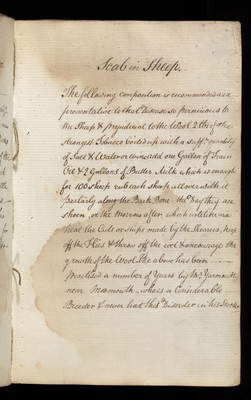 Scab in Sheep.
The following composition is recommended as a
preventative to that Disease so pernicious to
the Sheep & prejudicial to the Wool 2 lbs of the
strongest Tobacco boil'd up with a sufft. quantity
of Salt & Water or Urine add one Gallon of Train
Oil & 2 Gallons of Butter Milk which is enough
for 100 Sheep rub each sheep all over with it
particularly along the Back Bone the Day they are
shorn, or the Morning after which it will
heal the Cuts or snips made by the Shearers, keep
off the Flies & throw off the wet & encourage the
growth of the Wool. The above has been
Practised a number of Years by Mr.
near Monmouth, who is a Considerable
Breeder & never had this Disorder in his Flock